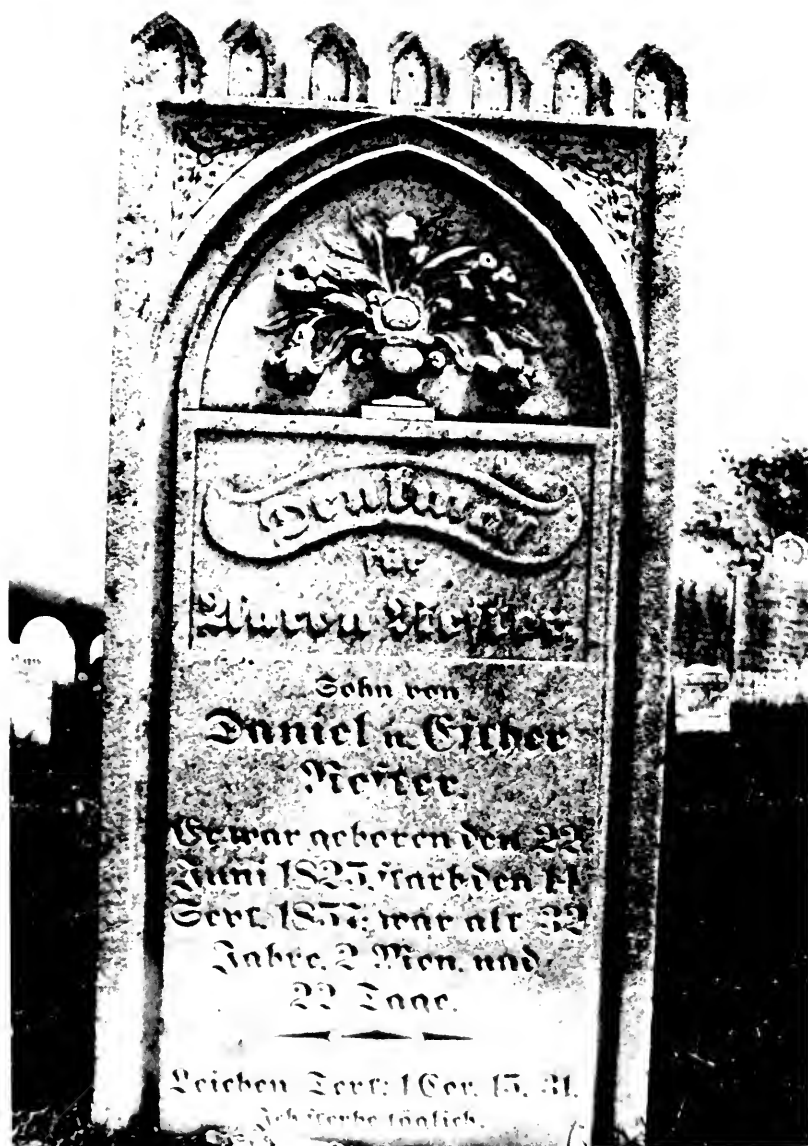 Denkmal
für
Aaron Nester.
Sohn von
Daniel u. Esther
Nester.
Er war geboren den 22
Juni 1825, starb den 14
Sept. 1857; war alt 32
Jahre, 2 Mon. und
22 Tage.
Leichen Text: 1 Cor. 15, 31.
Ich sterbe täglich.